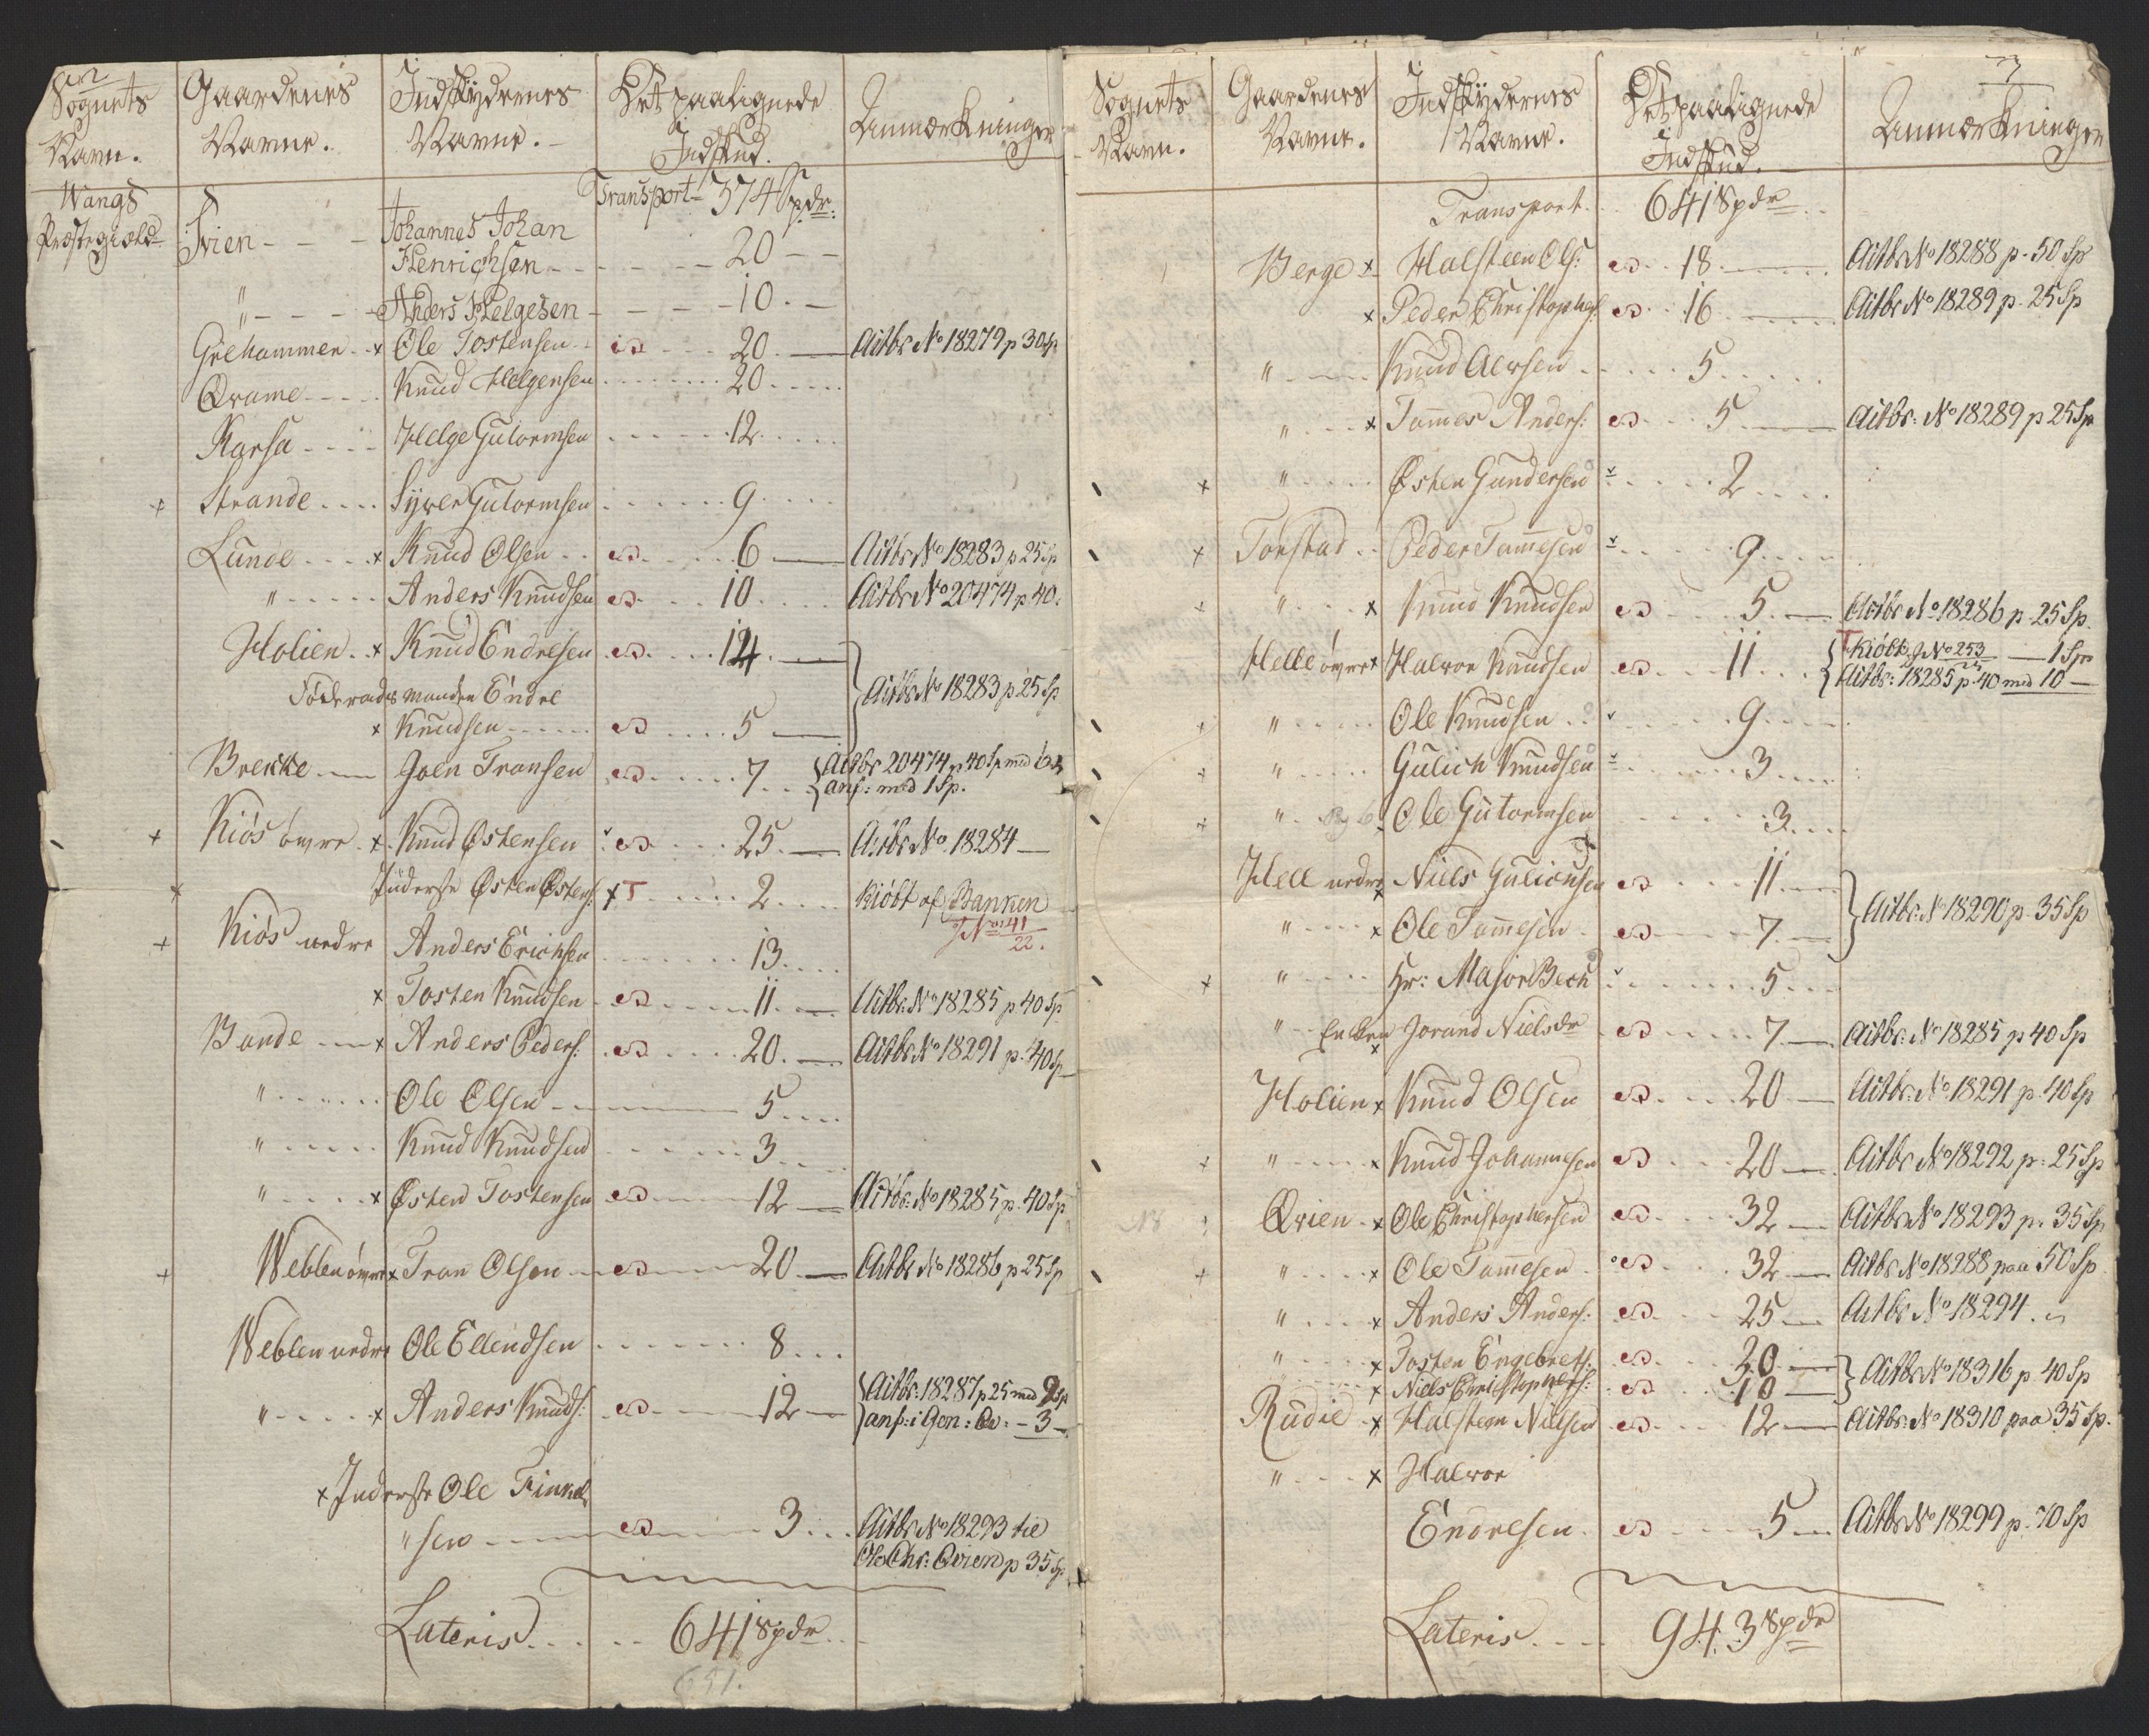 Sognets Navn. Gaardenes Navne. Indskydernes Navne. Det paalignede Indskud. Anmærkninger
Transport 374 Spdr:
Wangs Præstegield Qvien - - - Johannes Johan
Henrichsen - - - 20 - -
" - - - - Anders Helgesen - - - 10. -
Grihammer x Ole Tostensen 20. Aitbr No 18279 p 30 Sp
Qvame - - - Knud Helgensen 20
Karsa - - - Helge Gutormsen 12
+ Strande .... Syver Gutormsen 9
Lunde .... x Knud Olsen 6 Aitbr No 18283 p 25 Sp
" - - - - Anders Knudsen 10 Aitbr No 20474 p 40.
Holien .. x Knud Endresen 14
Föderads manden Endre
x Knudsen 5 Aitbr No 18283 p 25 Sp
Brekke Goen Transen 7 Aitbr 20474 p 40 Sp med 6
anf: med 1 Sp.
+ Kiös övre x Knud Østensen 25 Aitbr No 18284
x Inderste Østen Østens: x T 2 Kiöbt af Banken
J No 141/22.
+ Kiös nedre Anders Erichsen 13
x Tosten Knudsen 11 Aitbr No 18285 p 40 Sp
Bunde x Anders Peders: 20 Aitbr No 18291 p. 40 Sp
" - - - - Ole Olsen 5
" - - - - Knud Knudsen 3
" - - - - x Østen Tostensen 12 Aitbr: No 18285 p. 40 Sp
+ Weblen övre x Tron Olsen 20 Aitbr No 18286 p 25 Sp
Weblen nedre Ole Ellendsen 8
" - - - - x Anders Knuds: 12 Aitbr: 18287 p 25 med 9 Sp
anf: i Gen: Qv: - 3 -
x Inderste Ole Finkel
" sen 3 Aitbr No 18293 til
Ole Chr: Qvien p 35 Sp.
Lateris .... 641 Spdr
651.
7
Sognets Navn. Gaardenes Navne. Indskydernes Navne. Det paalignede Indskud. Anmærkninger
Transport. 641 Spdr
Berge x Halsteen Ols: 18 Aitbr No 18288 p. 50 Sp
x Peder Christophers: 16 Aitbr No 18289 p. 25 Sp
" - - - Knud Alersen 5
" - - - x Tommes Anders: 5 Aitbr: No 18289 p 25 Sp
+ " - - - Østen Gundersen 2
+ Torstad .. Peder Tommesen 9
+ " - - - x Knud Knudsen 5 Aitbr No 18286 p. 25 Sp.
Helle övre x Halvor Knudsen 11 T Kiöbt J No 253/23 — 1 Sp
Aitbr: 18285 p 40 med 10 —
+ " - - - Ole Knudsen 9
+ " - - - Gulich Knudsen 3
+ " Ole Gutormsen 3
Hell nedre x Niels Gulichsen 11
" - - - x Ole Tommesen 7 Aitbr: No 18290 p. 35 Sp
+ " - - - Hr: Major Bech 5
" - Enken x Jorand Nielsdr 7 Aitbr: No 18285 p 40 Sp
Holien x Knud Olsen 20 Aitbr: No 18291 p. 40 Sp
+ " - - - x Knud Johannesen 20 Aitbr No 18292 p. 25 Sp
Qvien x Ole Christophersen 32 Aitbr No 18293 p. 35 Sp
+ " - - - x Ole Tommesen 32 Aitbr No 18288 paa 50 Sp
" - - - x Anders Anders: 25 Aitbr No 18294.
" - - - x Tosten Engebrets: 20
x Niels Christophers: 10 Aitbr No 18316 p. 40 Sp
Rudie x Halsteen Nielsen 12 Aitbr: No 18310 paa 35 Sp.
" - - - x Halvor
Endresen 5 Aitbr No 18299 p. 70 Sp
Lateris .... 943 Spdr